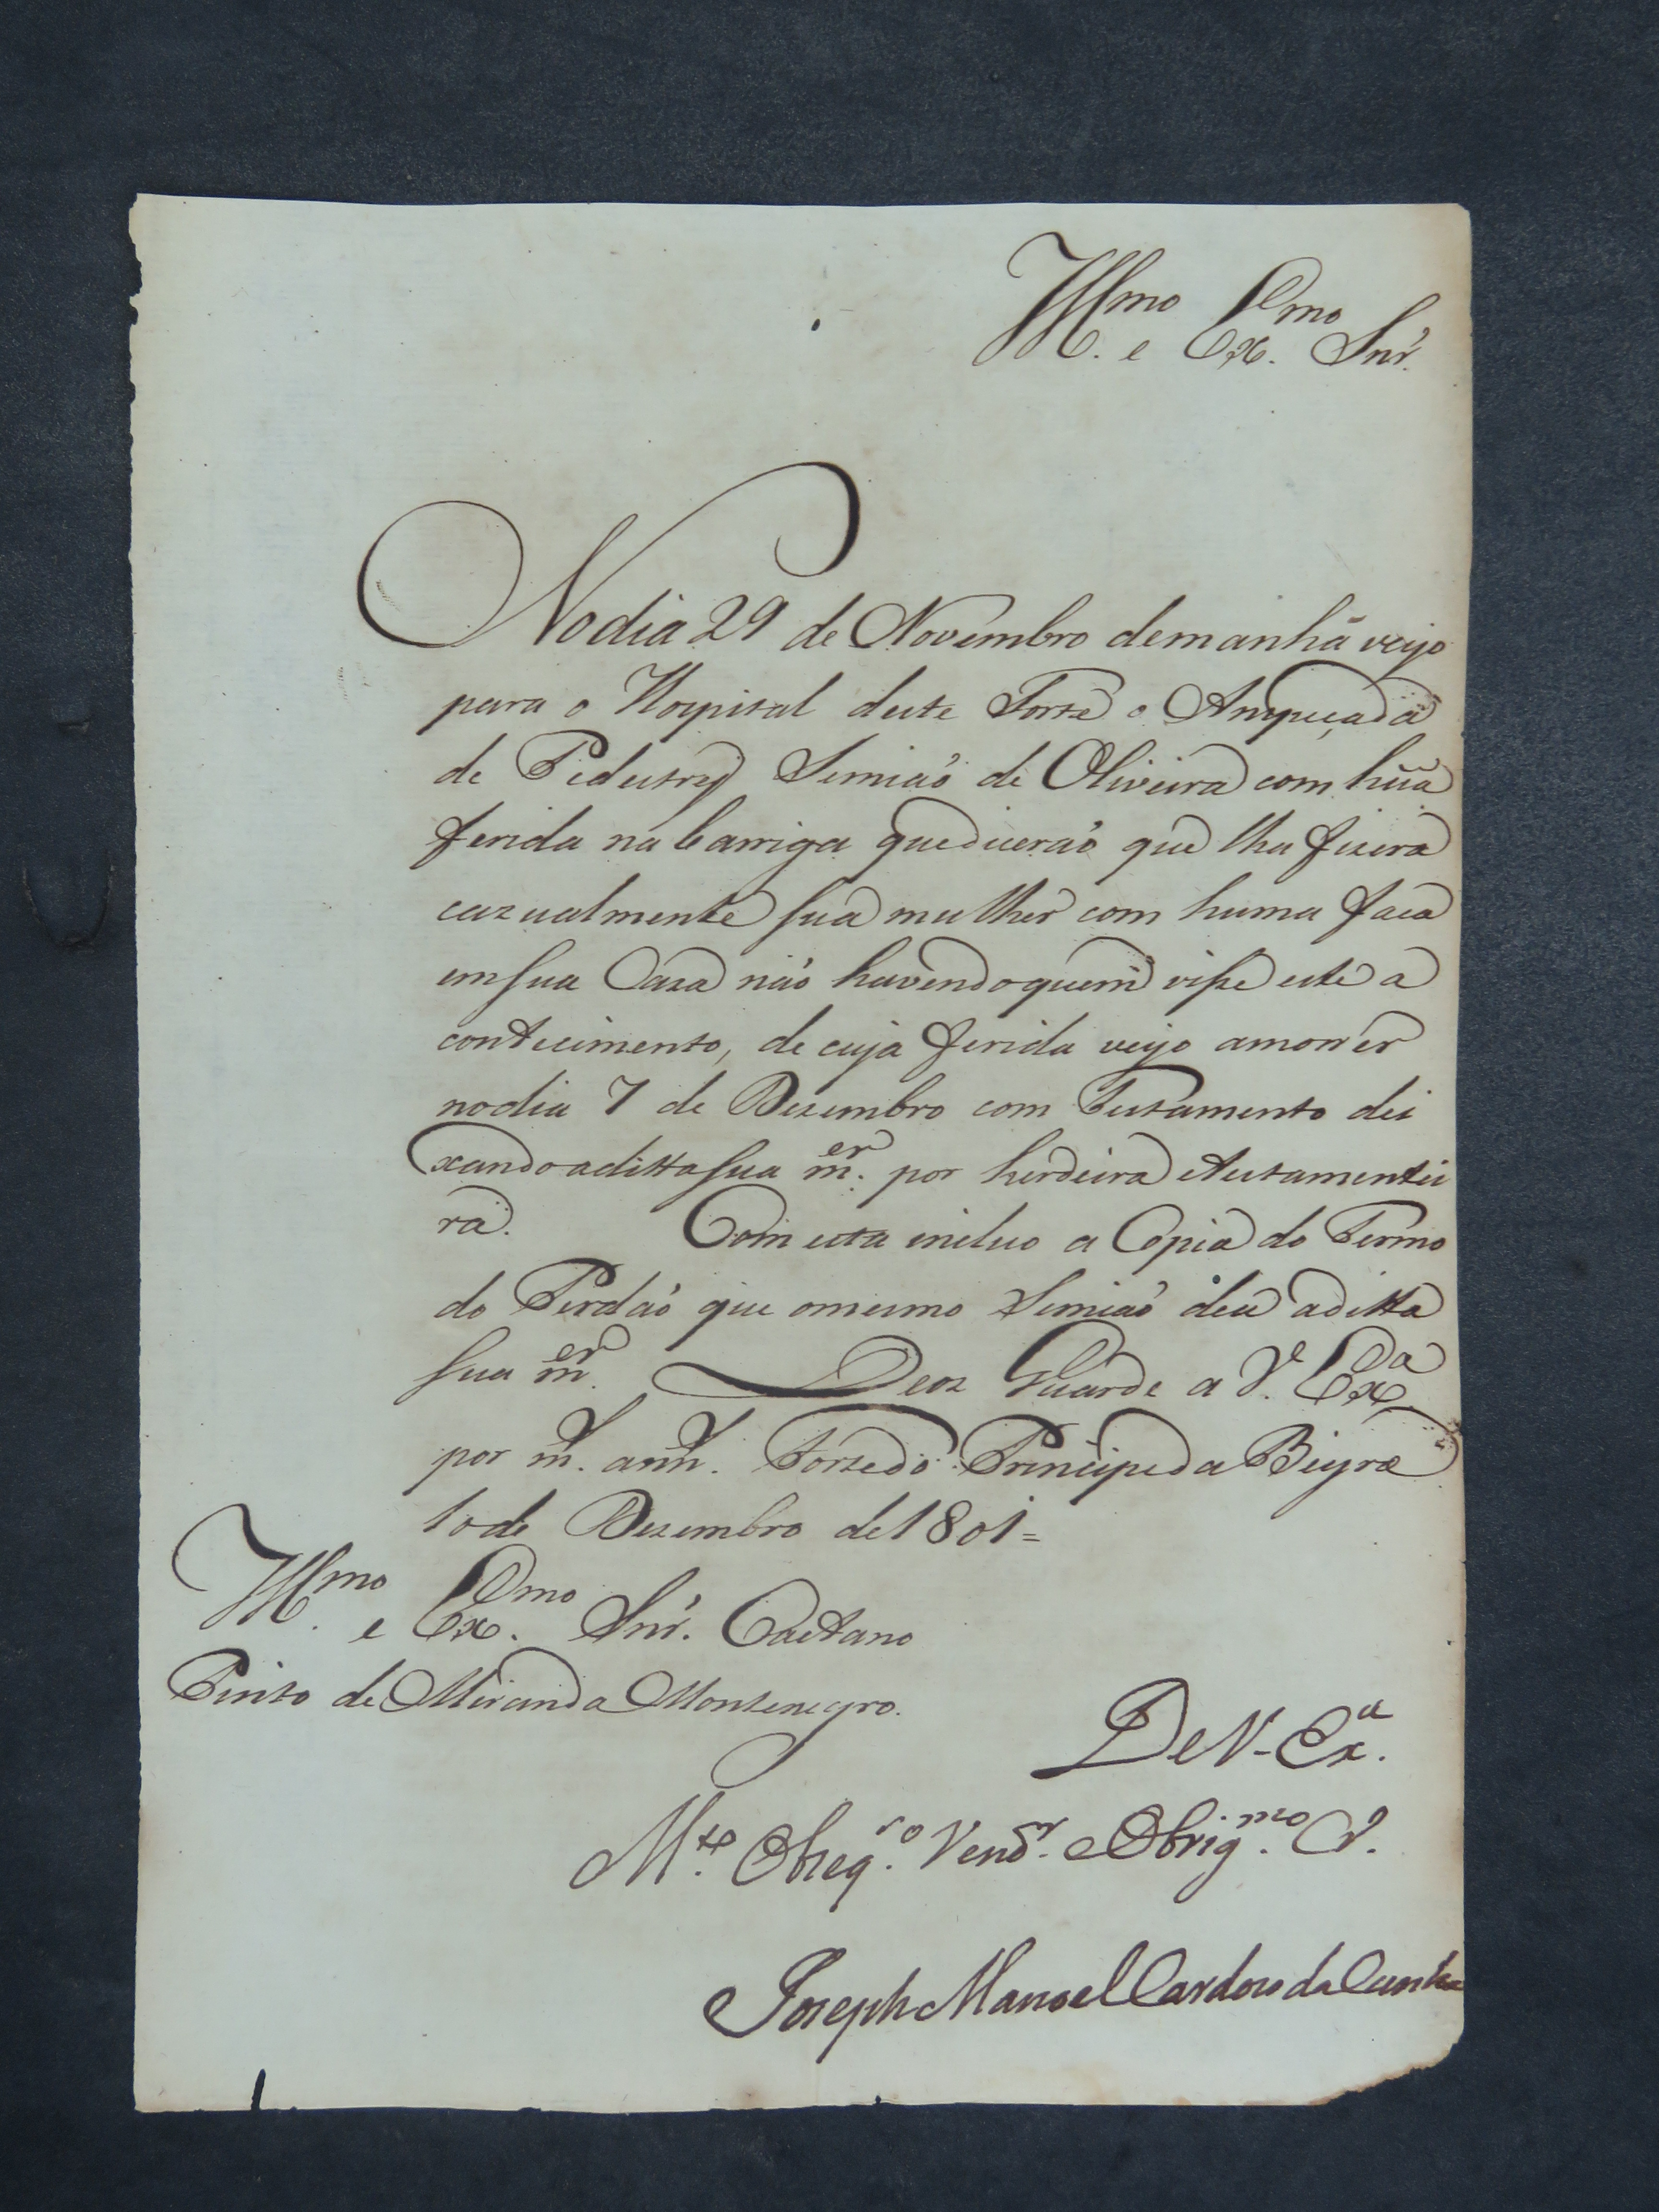 Ill.mo e Ex.mo Snr.
No dia 29 de Novembro demanhã veyo
para o Hospital deste Forte o Anspeçada
de Pedestres Simiaõ de Oliveira com hũa
ferida na barriga que dicerão que lha fizera
cazualmente sua mulher com huma faca
em sua Caza não havendo quem visse este a
contecimento, de cuja ferida veyo amorrer
no dia 7 de Dezembro com Testamento dei
xando aditta sua m.er por herdeira etestamentei
ra. Com esta incluo a Copia do Termo
do Perdaõ que omesmo Simiaõ deu aditta
sua m.er Deoz Guarde a V. Ex.a
por m.s ann.s Forte do Principe da Beyra
10 de Dezembro de 1801=
Ill.mo e Ex.mo Snr. Caetano
Pinto de Miranda Montenegro.
De V. Ex.a
M.to Obseq.ro Vened.or e Obrig.mo C.
Joseph Manoel Cardoso da Cunha